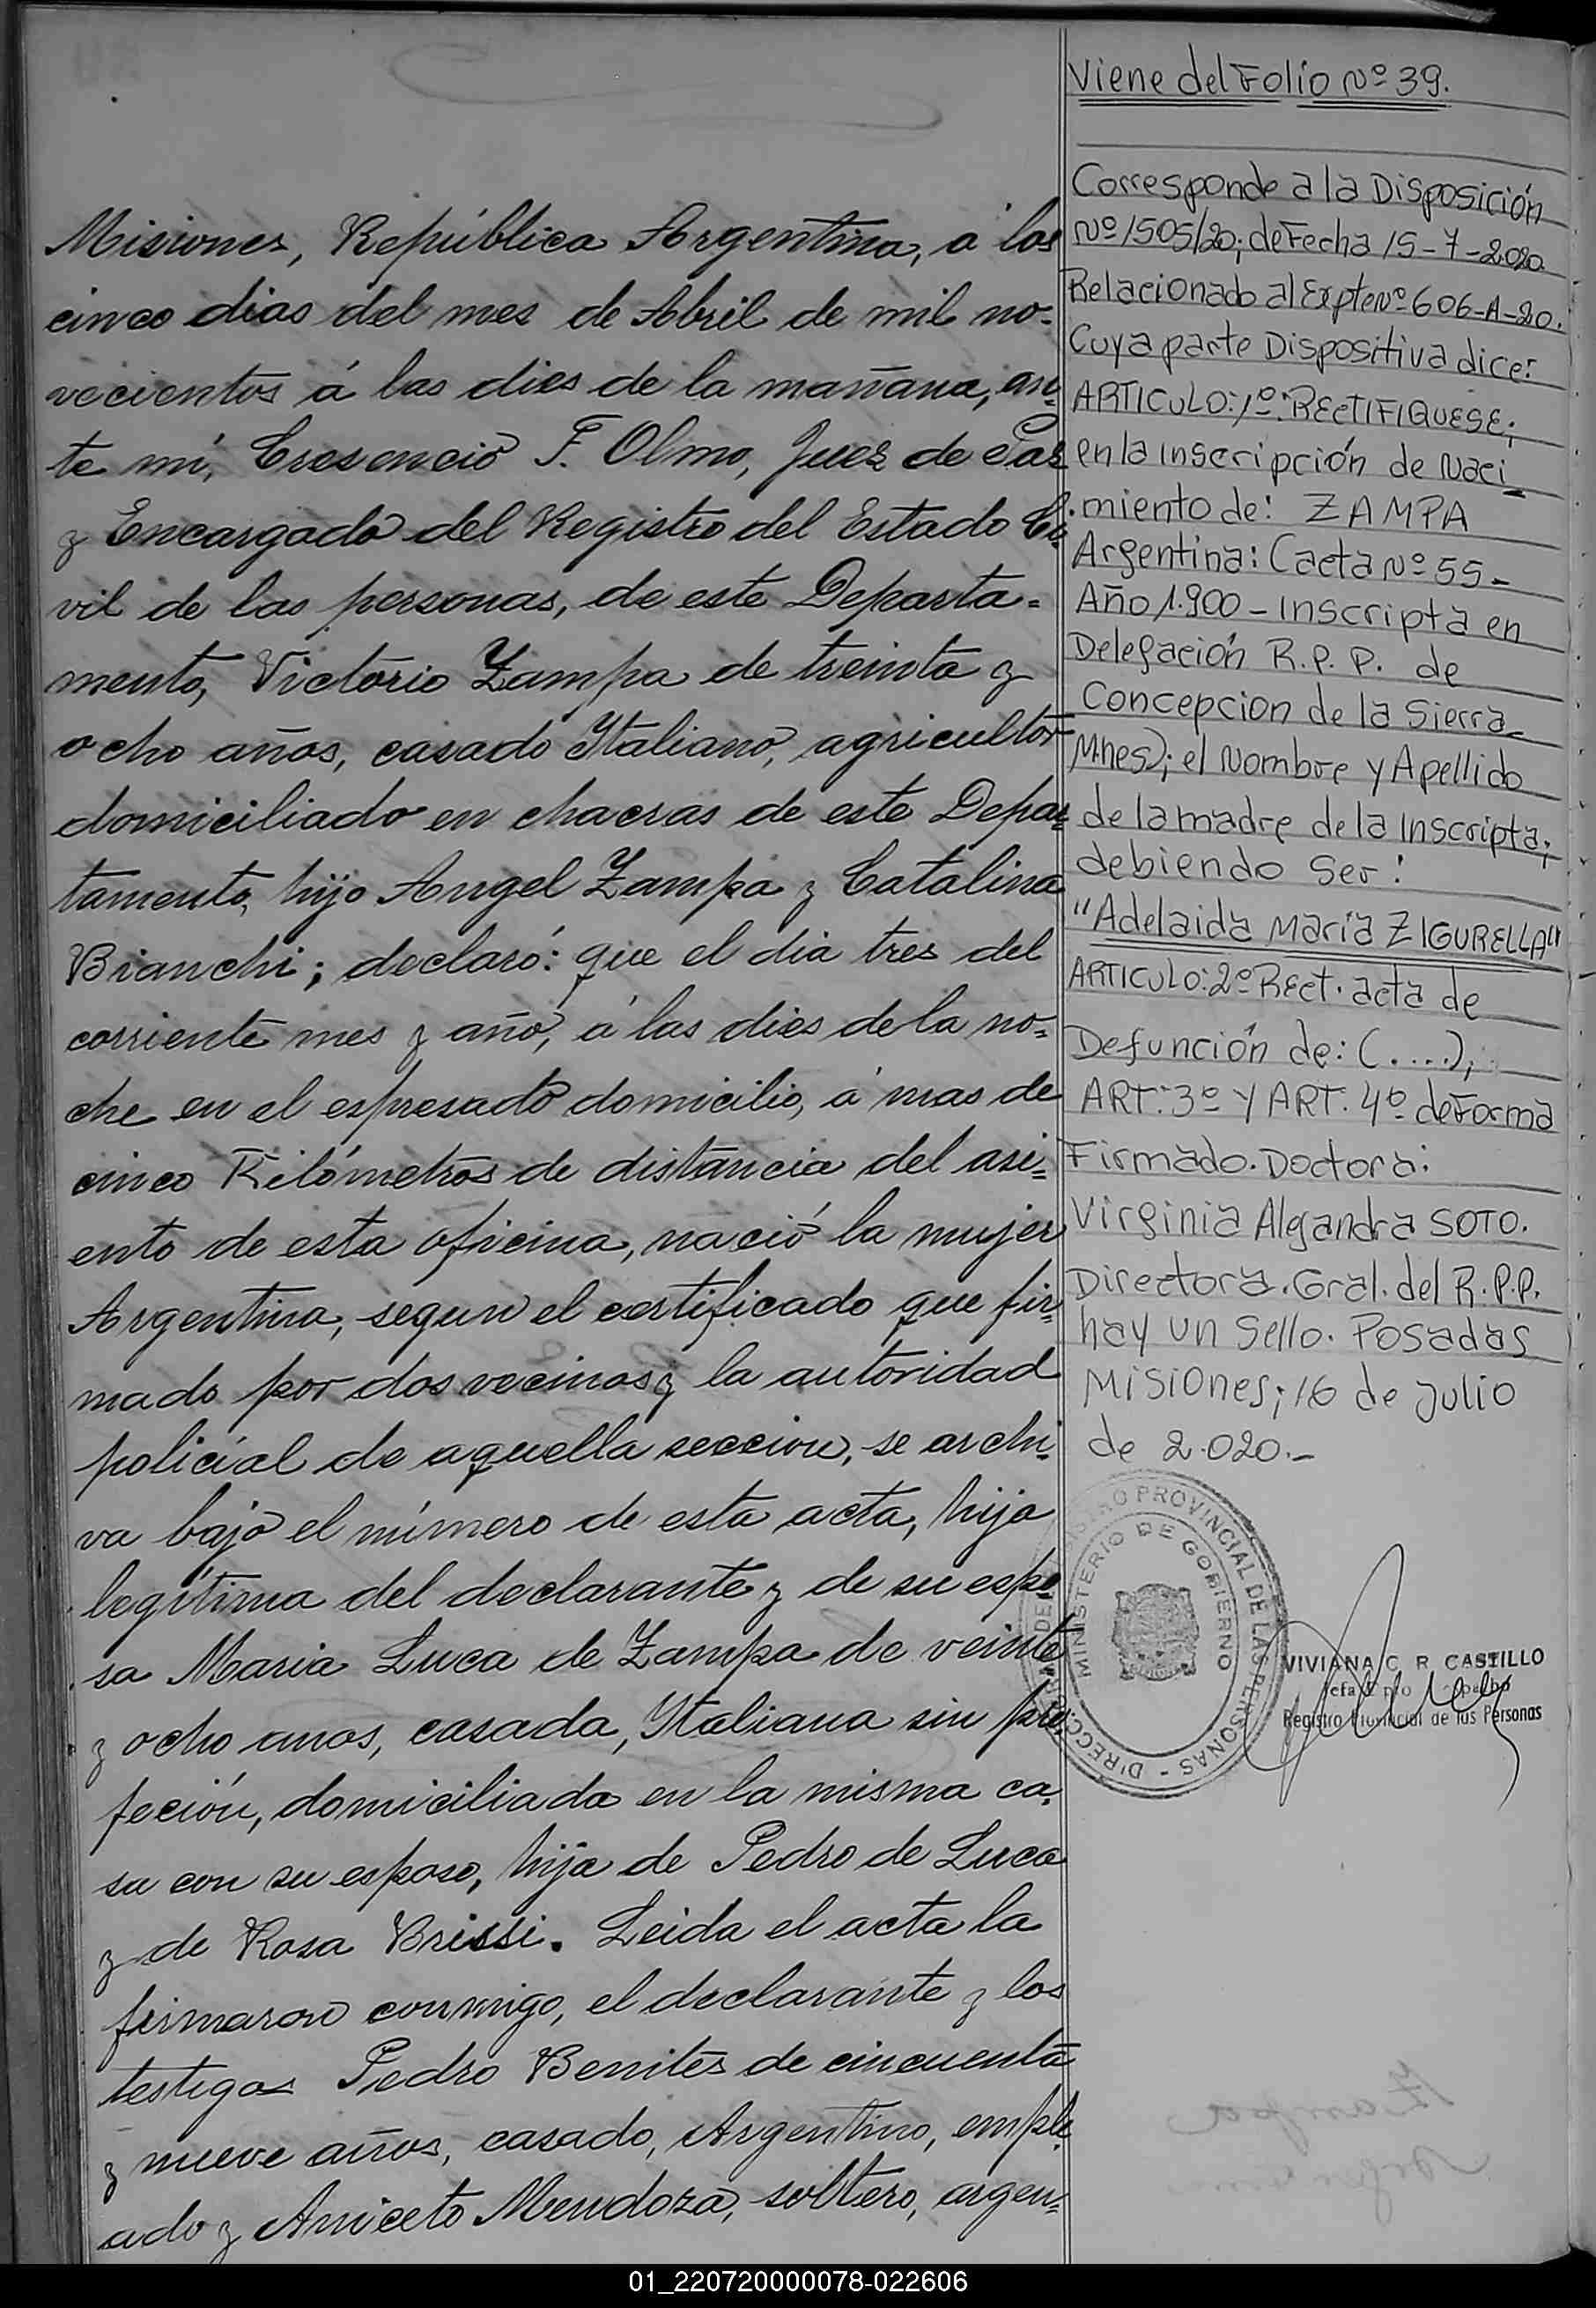 Misiones, República Argentina, a los
cinco dias del mes de Abril de mil no-
vecientos á las dies de la mañana, an-
te mí, Cresencio F. Olmo, Juez de Paz
y Encargado del Registro del Estado Ci-
vil de las personas, de este Departa=
mento, Victorio Zampa de treinta y
ocho años, casado Italiano, agricultor
domiciliado en chacras de este Depar-
tamento, hijo Angel Zampa y Catalina
Bianchi; declaró: que el dia tres del
corriente mes y año, á las dies de la no=
che en el espresado domicilio, á mas de
cinco Kilómetros de distancia del asi=
ento de esta oficina, nació la mujer
Argentina, segun el certificado que fir=
mado por dos vecinos y la autoridad
policial de aquella seccion, se archi-
va bajo el número de esta acta, hija
legítima del declarante y de su espo-
sa Maria Luca de Zampa de veinte
y ocho anos, casada, Italiana sin pro-
feción, domiciliada en la misma ca-
sa con su esposo, hija de Pedro de Luca
y de Rosa Brissi. Leida el acta la
firmaron conmigo, el declarante y los
testigos Pedro Benites de cincuenta
y nueve años, casado, Argentino, emple-
ado y Aniceto Mendoza, soltero, argen=
Viene del Folio Nº 39.
Corresponde a la Disposición
Nº 1505/20; de Fecha 15-7-2.020.
Relacionado al Expte Nº 606-A-20.
Cuya parte Dispositiva dice:
ARTICULO: 1º: RECTIFIQUESE;
en la inscripción de Naci-
miento de: ZAMPA
Argentina: (acta Nº 55-
Año 1.900 - inscripta en
Delegación R.P.P. de
Concepcion de la Sierra-
Mnes); el Nombre y Apellido
de la madre de la inscripta;
debiendo Ser:
"Adelaida María ZIGURELLA"
ARTICULO: 2º Rect. acta de
Defunción de: (....);
ART: 3º Y ART. 4º de Forma
Firmado. Doctora:
Virginia Alejandra SOTO.
Directora. Gral. del R.P.P.
hay un Sello. Posadas
Misiones; 16 de Julio
de 2.020.-
PROVINCIAL DE LAS PERSONAS
MINISTERIO DE GOBIERNO
VIVIANA C R CASTILLO
Registro Provincial de las Personas
01_220720000078-022606